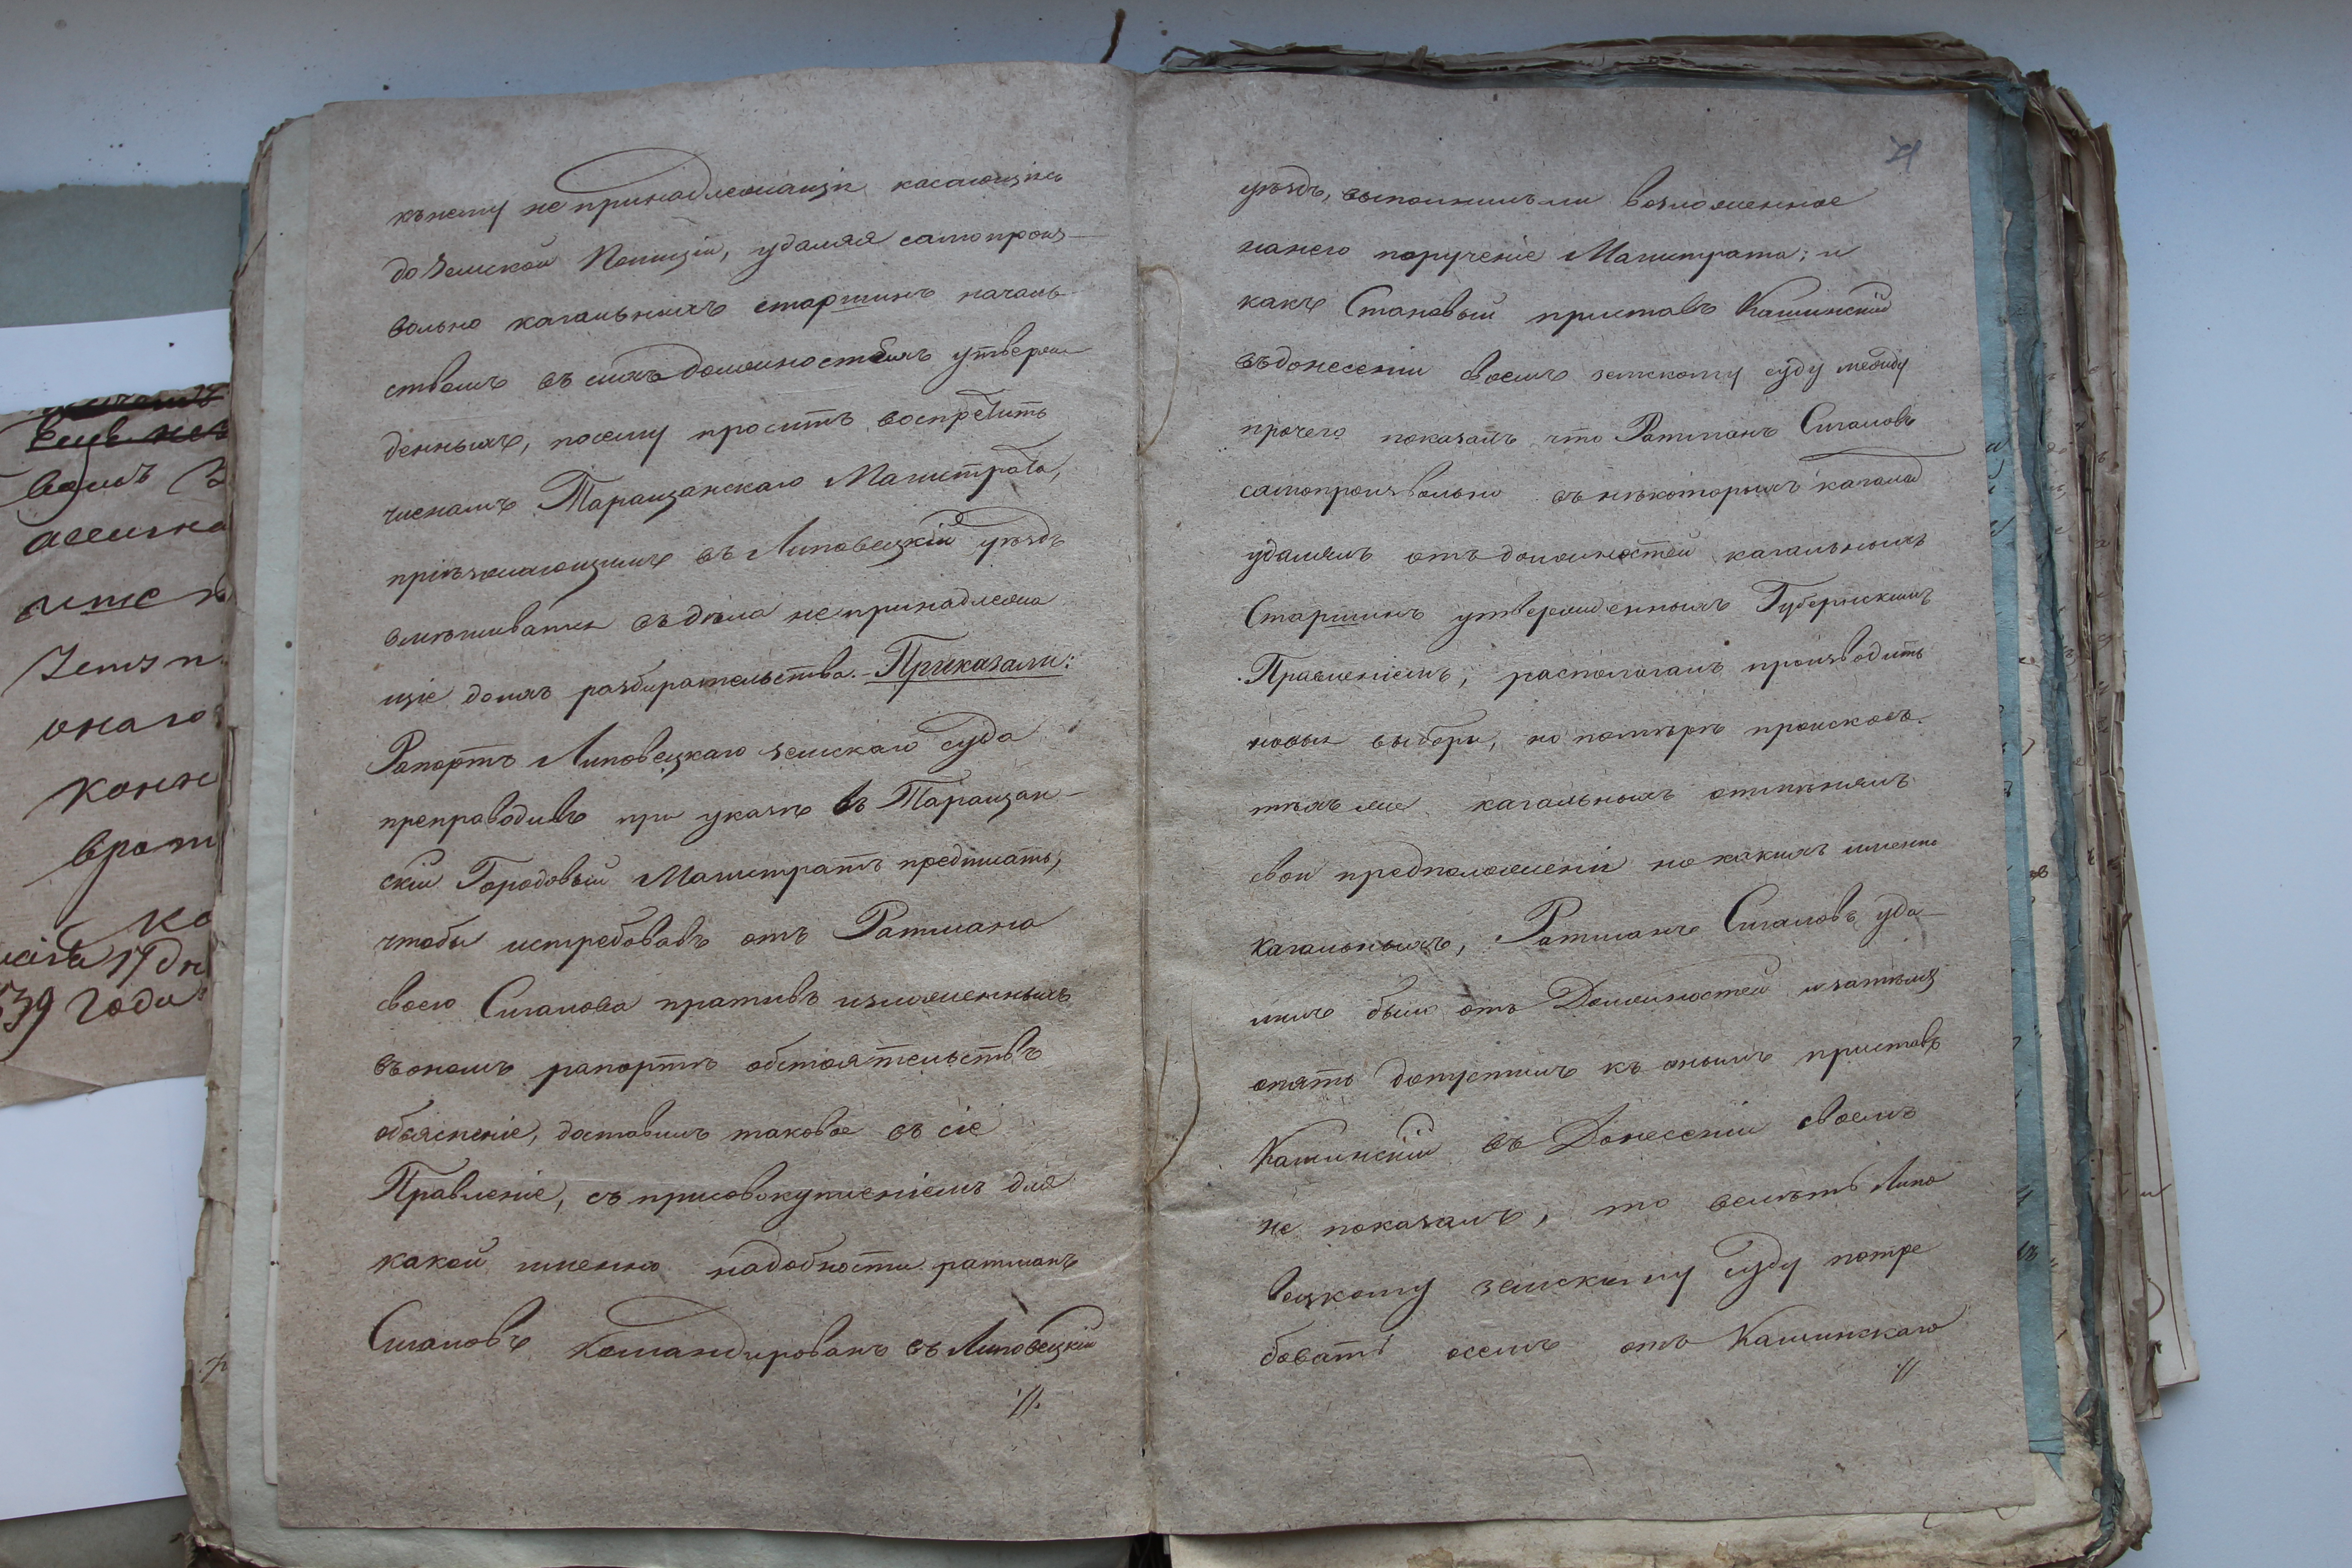 вашъ
онаго
39 года
къ нему не принадлежащія касающіяся
до Земской Полиціи, удаляя самопроиз-
вольно кагальныхъ старшинъ началь-
ствомъ въ сихъ должностяхъ утверж
денныхъ, посему проситъ воспретить
членамъ Таращанскаго Магистрата,
пріезжающимъ въ Липовецкій уѣздъ
вмѣшиватся въ дѣла не принадлежа
щіе до ихъ разбирательства. - Приказали:
Рапортъ Липовецкаго земскаго суда
препроводивъ при указѣ въ Таращан-
скій Городовый Магистратъ предписать,
чтобы истребовавъ отъ Ратмана
своего Сигалова противъ изложенныхъ
въ ономъ рапортѣ обстоятельствъ
объясненіе, доставилъ таковое въ сіе
Правленіе, съ присовокупленіемъ для
какой именно надобности ратманъ
Сигаловъ командированъ въ Липовецкій
//.
71
уѣздъ, выполнилъ ли возложенное
на него порученіе Магистрата; и
какъ Становый приставъ Кашинскій
въ донесеніи своемъ земскому суду между
прочего показалъ что Ратманъ Сигаловъ
самопроизвольно въ нѣкоторыхъ кагалах
удалялъ отъ должностей кагальныхъ
Старшинъ утвержденныхъ Губернскимъ
Правленіемъ, располагалъ производить
новыи выборы, но по мѣрѣ происковъ
тѣхъ же кагальныхъ отмѣнялъ
свои предположеніи но какихъ именно
кагальныхъ, Ратманъ Сигаловъ уда-
лилъ былъ отъ Должностей и затѣмъ
опять допустилъ къ онымъ приставъ
Кашинскій въ Донесеніи своемъ
не показалъ, то велѣть Липо
вецкому земскому суду потре
бовать о семъ отъ Кашинскаго
//